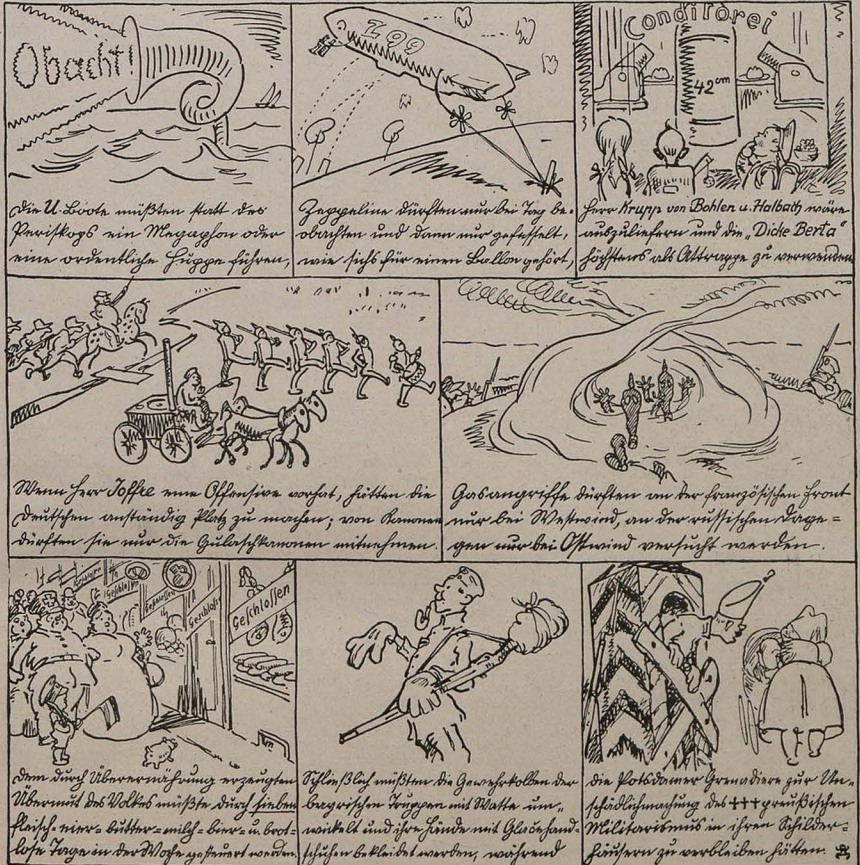 Obacht!
Die U-Boote müßten statt des
Periskops ein Megaphon oder
eine ordentliche Huppe führen,
Z 99
Zeppeline dürften nur bei Tag be-
obachten und dann nur gefesselt,
wie sichs für einen Ballon gehört,
Conditorei
42 cm
Herr Krupp von Bohlen u. Halbach wäre
auszuliefern und die „Dicke Berta"
höchstens als Attrappe zu verwenden
Wenn Herr Joffre eine Offensive vorhat, hätten die
Deutschen anständig Platz zu machen; von Kanonen
dürften sie nur die Gulaschkanonen mitnehmen.
Gasangriffe dürften an der französischen Front
nur bei Westwind, an der russischen dage=
gen nur bei Ostwind versucht werden.
Geschlossen
Geschlossen
Geschlossen
Geschloss
Geschlossen
Dem durch Überernährung erzeugten
Übermut des Volkes müßte durch sieben
fleisch=eier=butter=milch=bier=u. brot=
lose Tage in der Woche gesteuert werden,
Schließlich müßten die Gewehrkolben der
bayrischen Truppen mit Watte um=
wickelt und ihre Hände mit Glacéhand=
schuhen bekleidet werden, während
die Potsdamer Grenadiere zur Un=
schädlichmachung des ††† preußischen
Militarismus in ihren Schilder=
häusern zu verbleiben hätten.